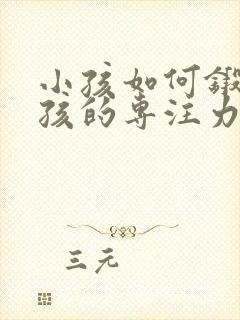 小孩如何锻
孩的专注力
三元